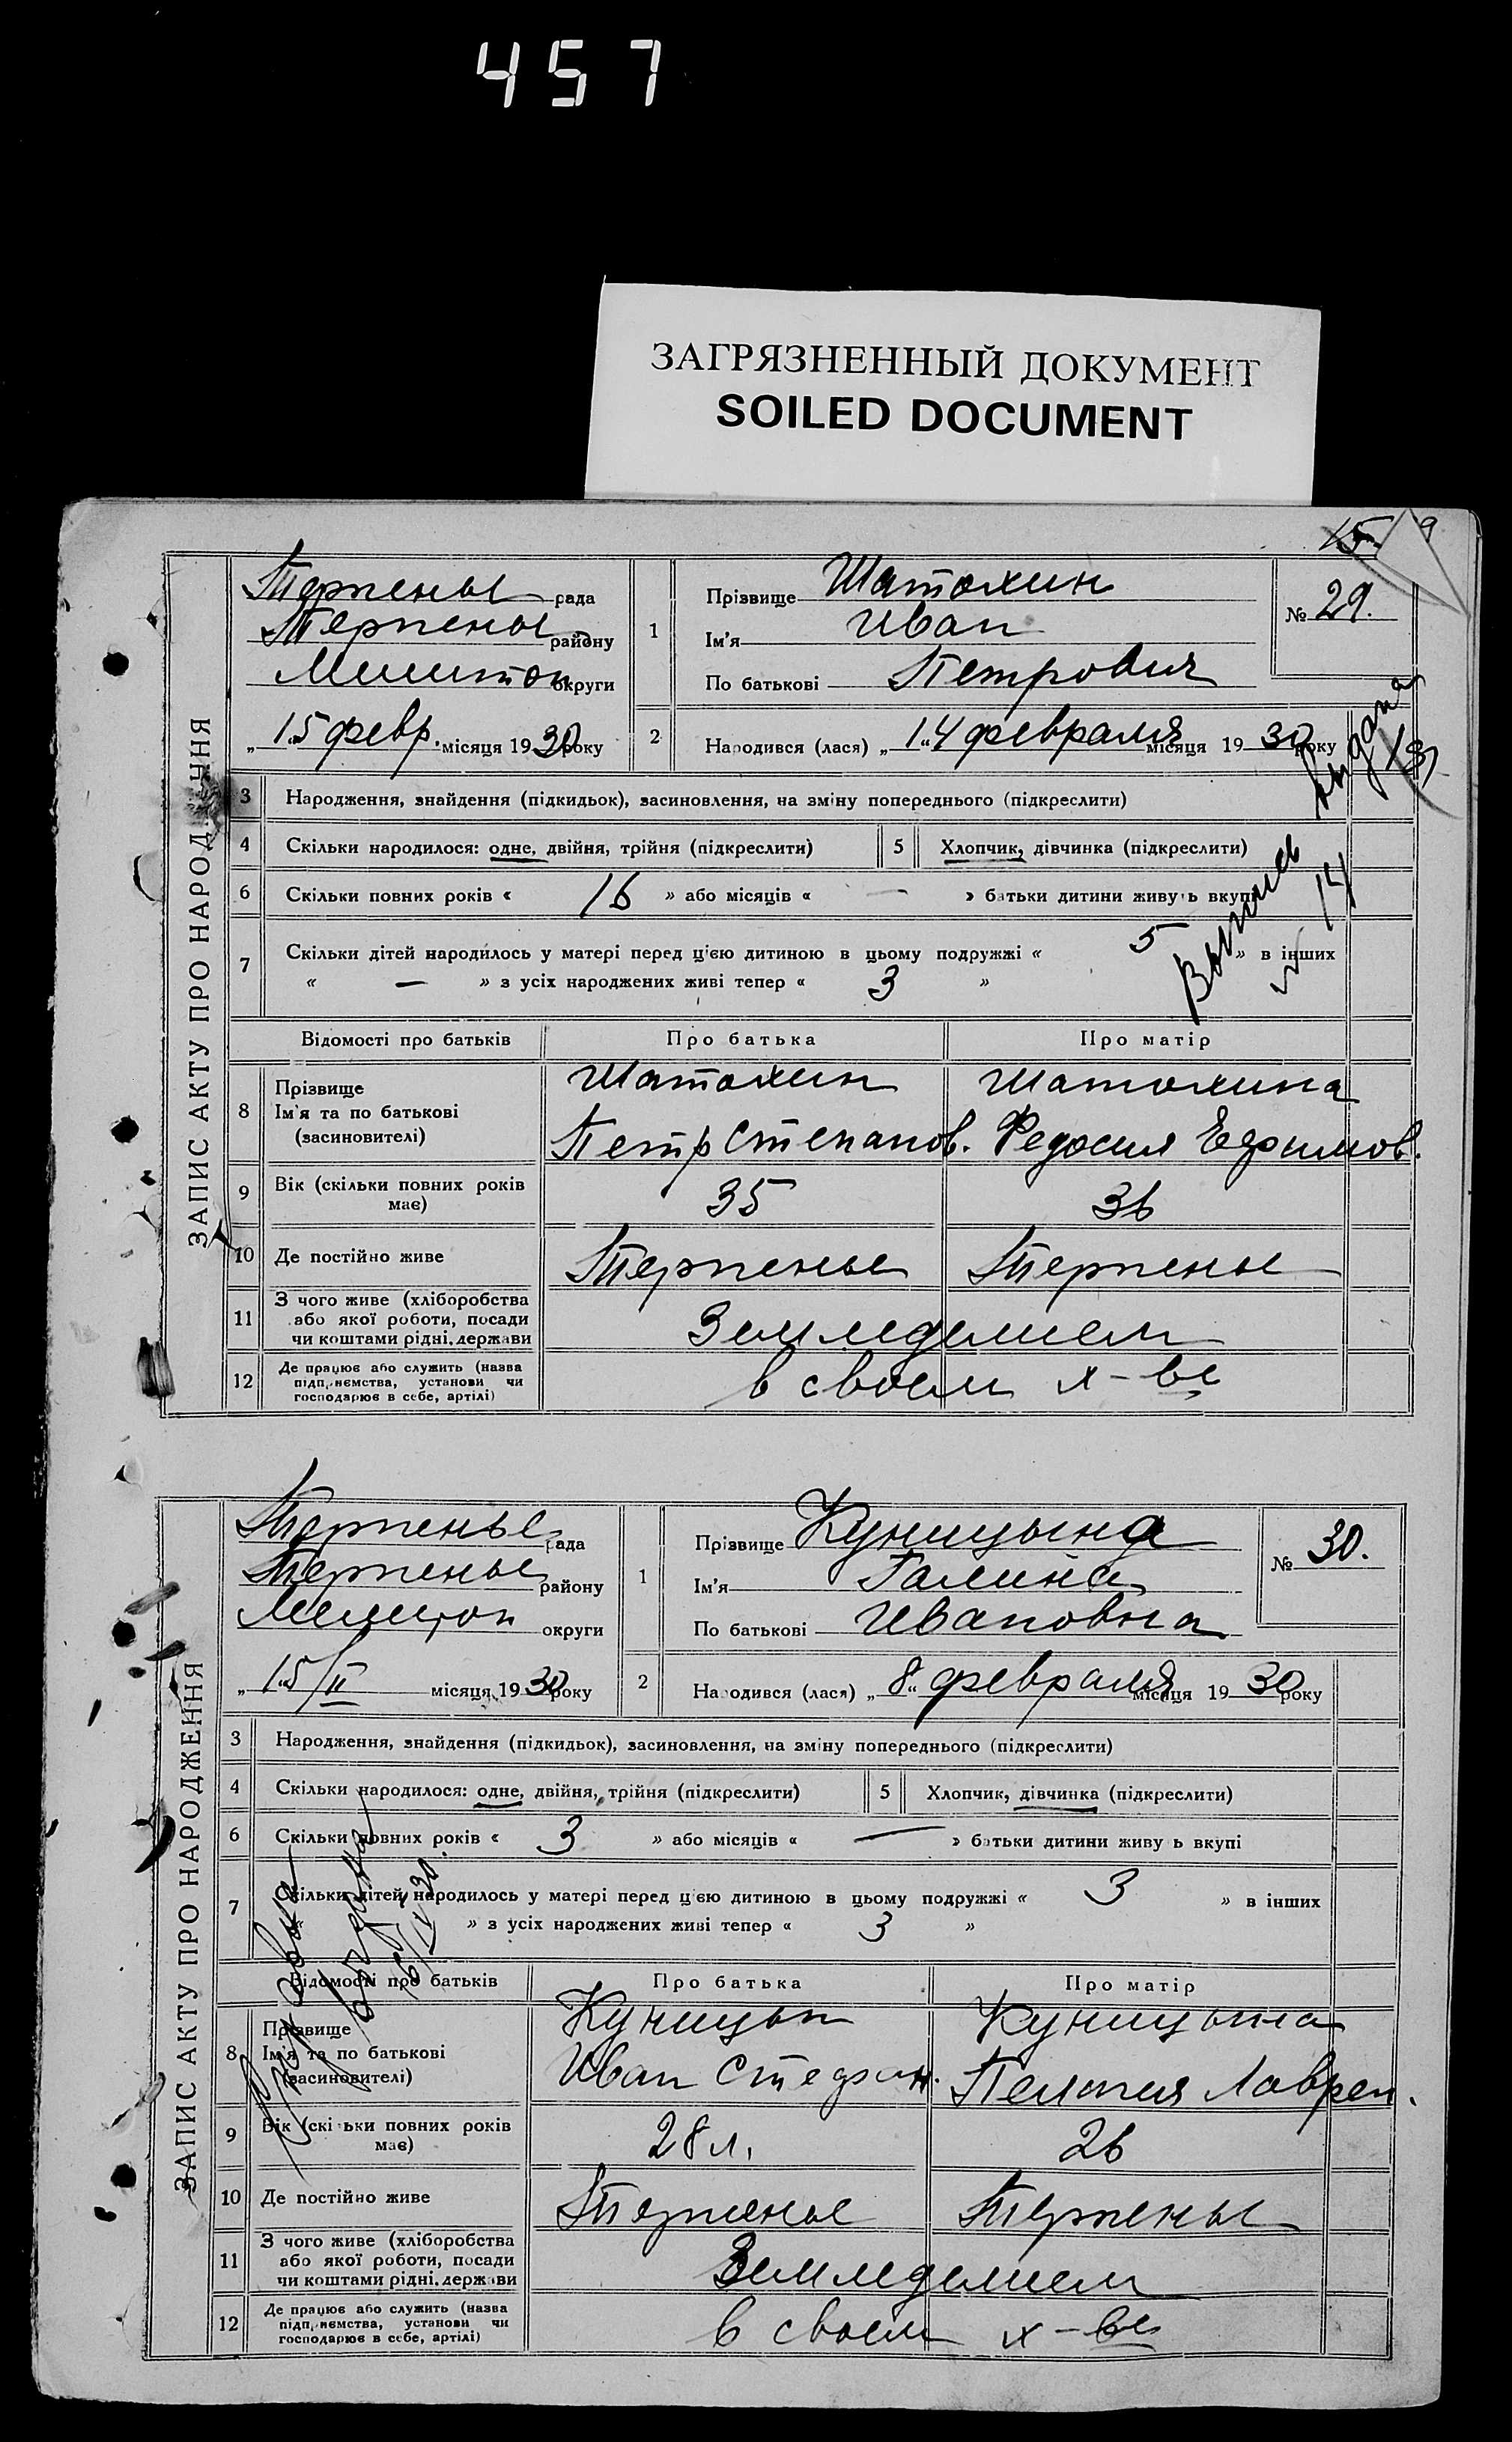 457
ЗАГРЯЗНЕННЫЙ ДОКУМЕНТ
SOILED DOCUMENT
15 9
ЗАПИС АКТУ ПРО НАРОДЖЕННЯ
Терпенье рада
Терпенье району
Мелитоп округи
„ 15 " февр. місяця 1930 року
1 Прізвище Шатохин
Ім'я Иван
По батькові Петрович
№ 29.
2 Народився (лася) „ 14 " февраля місяця 1930 року
Выпись выдана
3 Народження, знайдення (підкидьок), засиновлення, на зміну попереднього (підкреслити)
4 Скільки народилося: одне, двійня, трійня (підкреслити) 5 Хлопчик, дівчинка (підкреслити)
6 Скільки повних років « 16 » або місяців « — » батьки дитини живуть вкупі
7 Скільки дітей народилось у матері перед цією дитиною в цьому подружжі « 5 » в інших
« — » з усіх народжених живі тепер « 3 »
Відомості про батьків Про батька Про матір
8 Прізвище Шатохин Шатохина
Ім'я та по батькові
(засиновителі) Петр Степанов. Федосия Ефимов.
9 Вік (скільки повних років має) 35 36
10 Де постійно живе Терпенье Терпенье
11 З чого живе (хліборобства
або якої роботи, посади
чи коштами рідні, держави Земледелием
12 Де працює або служить (назва
підприємства, установи чи
господарює в себе, артілі) в своем х-ве
ЗАПИС АКТУ ПРО НАРОДЖЕННЯ
Терпенье рада
Терпенье району
Мелитоп округи
„ 15/II місяця 1930 року
1 Прізвище Куницына
Ім'я Галина
По батькові Ивановна
№ 30.
2 Народився (лася) „ 8 " февраля місяця 1930 року
3 Народження, знайдення (підкидьок), засиновлення, на зміну попереднього (підкреслити)
4 Скільки народилося: одне, двійня, трійня (підкреслити) 5 Хлопчик, дівчинка (підкреслити)
6 Скільки повних років « 3 » або місяців « — » батьки дитини живуть вкупі
7 Скільки дітей народилось у матері перед цією дитиною в цьому подружжі « 3 » в інших
« » з усіх народжених живі тепер « 3 »
выдана
Відомості про батьків Про батька Про матір
8 Прізвище Куницын Куницына
Ім'я та по батькові
(засиновителі) Иван Стефан. Пелагия Лаврен.
9 Вік (скільки повних років має) 28 л. 26
10 Де постійно живе Терпенье Терпенье
11 З чого живе (хліборобства
або якої роботи, посади
чи коштами рідні, держави Земледелием
12 Де працює або служить (назва
підприємства, установи чи
господарює в себе, артілі) в своем х-ве